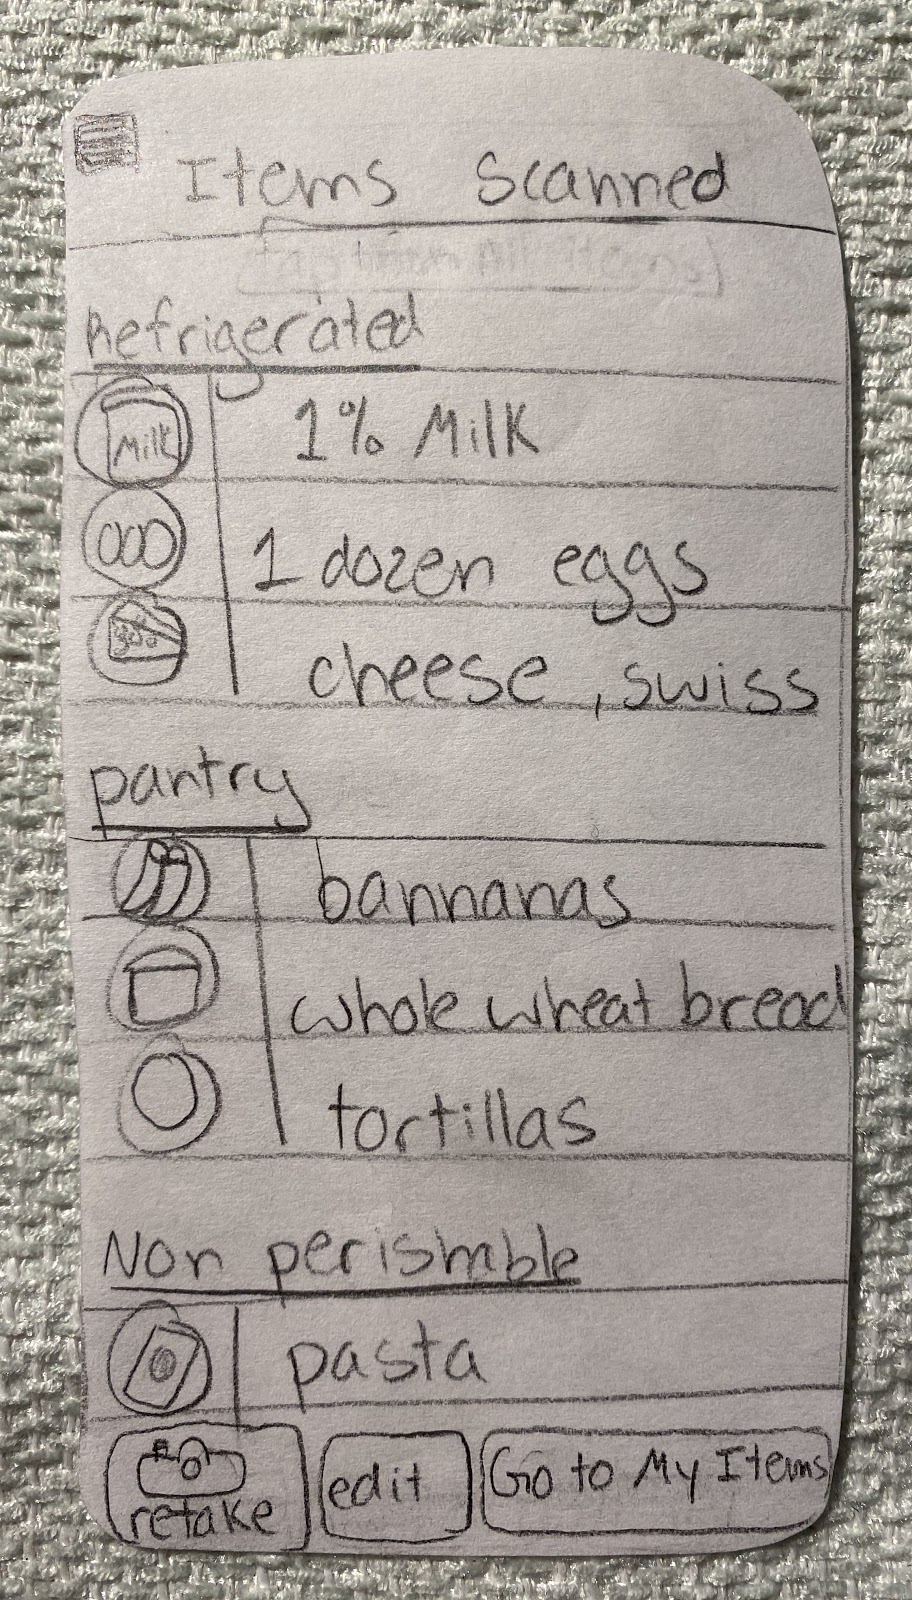 Items Scanned
Refrigerated
Milk
1% Milk
1 dozen eggs
cheese, swiss
pantry
bannanas
whole wheat bread
tortillas
Non perishable
pasta
retake
edit
Go to My Items